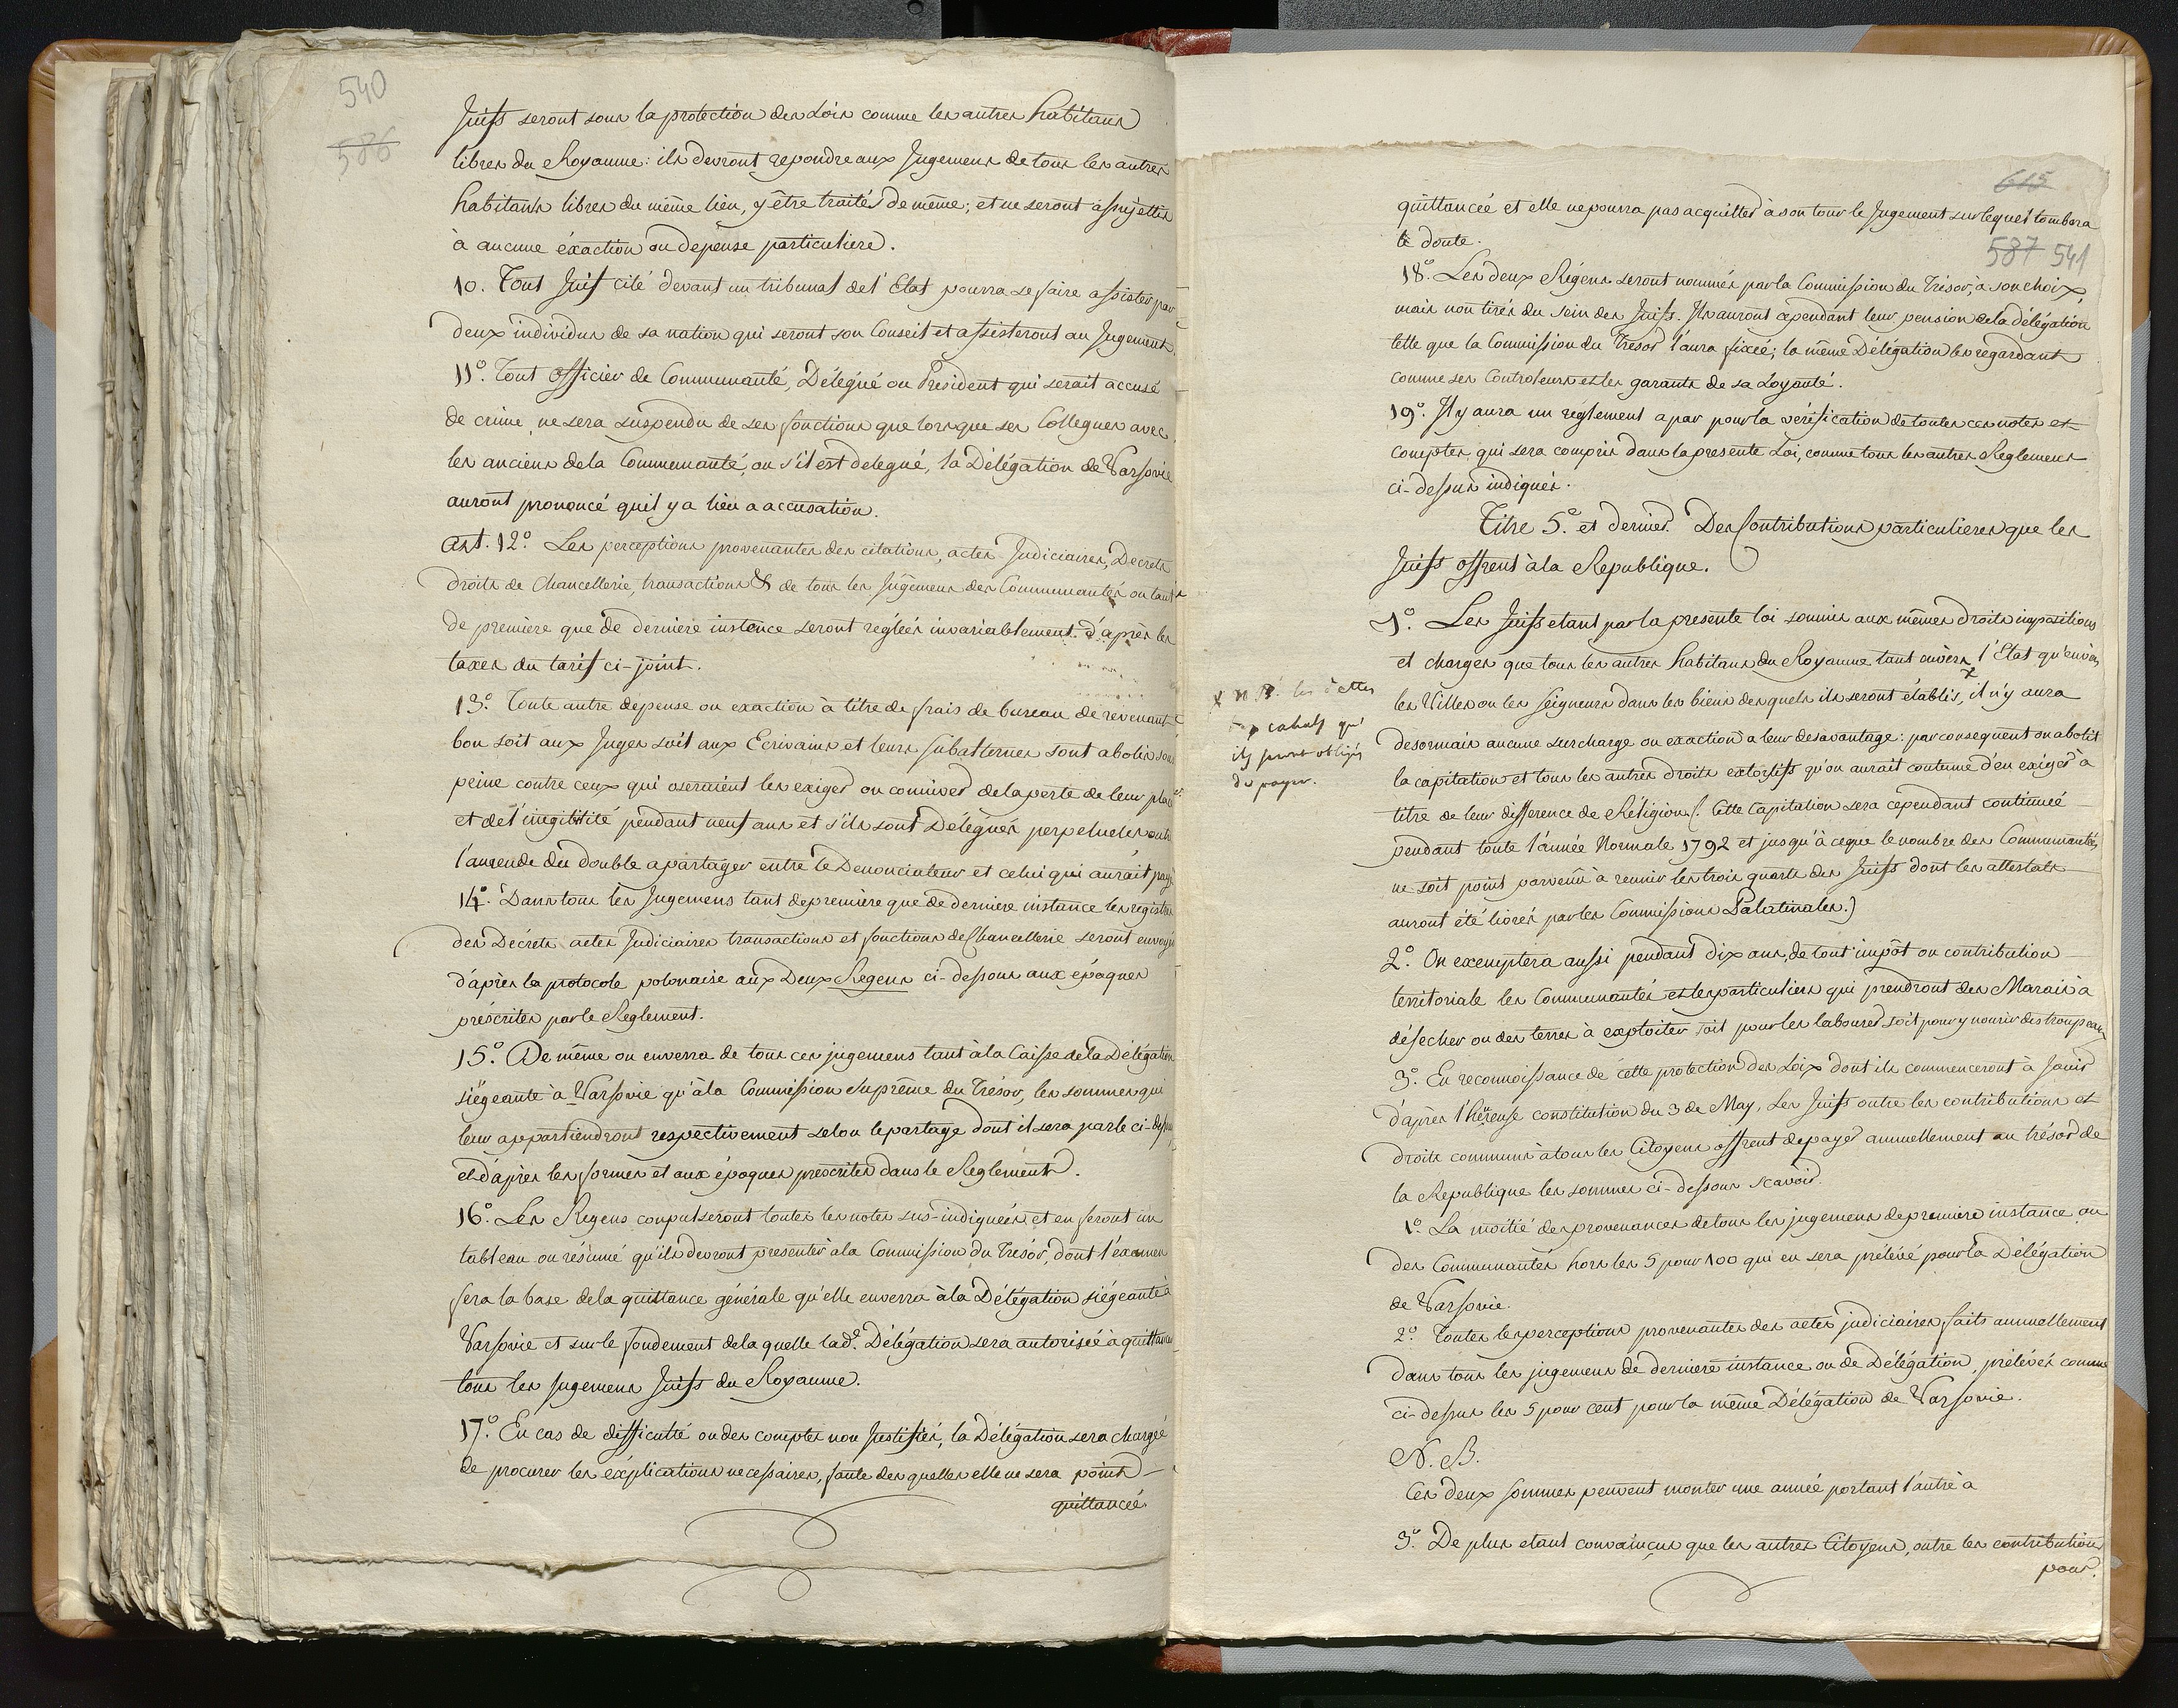 540
586
Juifs seront sous la protection des Loix comme les autres habitans
libres du Royaume: ils devront repondre aux Jugemens de tous les autres
habitans libres du même lieu, y être traités de même; et ne seront assujettis
à aucune éxaction ou depense particuliere.
10. Tout Juif cité devant un tribunal de l'Etat pourra se faire assister par
deux individus de sa nation qui seront son Conseil et assisteront au Jugement.
11º. Tout officier de Communauté, Délégué ou President qui serait accusé
de crime, ne sera suspendu de ses fonctions que lorsque ses Collegues avec
les anciens de la Communauté, ou s'il est delegué, la Délégation de Varsovie
auront prononcé qu'il y a lieu a accusation.
Art. 12º. Les perceptions provenantes des citations, actes Judiciaires, Decrets
droits de Chancellerie, transactions & de tous les Jugemens des Communautés ou tant
de première que de derniere instance seront reglées invariablement d'après les
taxes du tarif ci-joint.
13º. Toute autre depense ou exaction à titre de frais de bureau de revenant
bon soit aux Juges soit aux Ecrivains et leurs subalternes sont abolis sous
peine contre ceux qui oseraient les exiger ou conniver de la perte de leur place
et de l'inegibilité pendant neuf ans et s'ils sont Délégués perpetuels outre
l'amende du double a partager entre le Denonciateur et celui qui aurait payé
14º. Dans tous les Jugemens tant de première que de derniere instance les registres
des Décrets actes Judiciaires transactions et fonctions de Chancellerie seront envoyés
d'après le protocole polonaise aux Deux Regens ci-dessous aux époques
préscrites par le Reglement.
15º. De même on enverra de tous ces jugemens tant à la Caisse de la Délégation
siégeante à Varsovie qu'à la Commission Suprême du Trésor, les sommes qui
leur appartiendront respectivement selon le partage dont il sera parlé ci-dessous
et d'après les formes et aux époques prescrites dans le Reglement.
16º. Les Regens conpulseront toutes les notes sus-indiquées et en feront un
tableau ou résumé qu'ils devront presenter à la Commission du Trésor, dont l'éxamen
sera la base de la quittance générale qu'elle enverra à la Délégation siégeante à
Varsovie et sur le fondement de la quelle lad.e Délégation sera autorisée à quittancer
tous les Jugemens Juifs du Royaume.
17º. En cas de difficulté ou des comptes non Justifiés, la Délégation sera chargée
de procurer les éxplications necessaires, faute des quelles elle ne sera point
quittancée
615
587 541
quittancée et elle ne pourra pas acquitter à son tour le Jugement sur lequel tombera
le doute.
18º. Les deux Régens seront nommés par la Commission du Trésor, à son choix,
mais non tirés du sein des Juifs. Ils auront cependant leur pension de la délégation
telle que la Commission du Tresor l'aura fixée; la même Délégation les regardant
comme ses Controleurs et les garants de sa Loyauté.
19º. Il y aura un réglement a par pour la vérification de toutes ces notes et
comptes, qui sera compris dans la presente Loi, comme tous les autres Reglemens
ci-dessus indiqués.
Titre 5º. et dernier. Des Contributions particulieres que les
Juifs offrent à la Republique.
1º. Les Juifs etant par la presente loi soumis aux mêmes droits impositions
et charges que tous les autres habitans du Royaume tant envers l'Etat qu'envers
les Villes ou les Seigneurs dans les biens desquels ils seront établis, x il n'y aura
desormais aucune surcharge ou exaction a leur desavantage: par consequent on abolit
la capitation et tous les autres droits extorsifs qu'on aurait coutume d'en exiger à
titre de leur difference de Réligion (. Cette Capitation sera cependant continuée
pendant toute l'année Normale 1792 et jusqu'à ceque le nombre des Communautés
ne soit point parvenu à reunir les trois quarts des Juifs dont les attestats
auront été livrés par les Commissions Palatinales.)
x N.B. les dettes
cahals qu'
ils seront obligés
de payer.
2º. On exemptera aussi pendant dix ans, de tout impôt ou contribution
territoriale les Communautés et les particuliers qui prendront des Marais à
désecher ou des terres à exploiter soit pour les labourer soit pour y nourir des troupeaux
3º. En reconnoissance de cette protection des Loix dont ils commenceront à Jouir
d'après l'héreuse constitution du 3 de May, les Juifs outre les contributions et
droits communs à tous les Citoyens offrent de payer annuellement au trésor de
la Republique les sommes ci-dessous scavoir.
1º. La moitié des provenances de tous les jugemens de première instance ou
des Communautés hors les 5 pour 100 qui en sera prélévé pour la Délégation
de Varsovie.
2º. Toutes les perceptions provenantes des actes judiciaires faits annuellement
dans tous les jugemens de derniere instance ou de Délégation, prélévés comme
ci-dessus les 5 pour cent pour la même Délégation de Varsovie.
N.B.
Ces deux sommes peuvent monter une année portant l'autre à
3º. De plus etant convaincus que les autres Citoyens, outre les contributions
pour